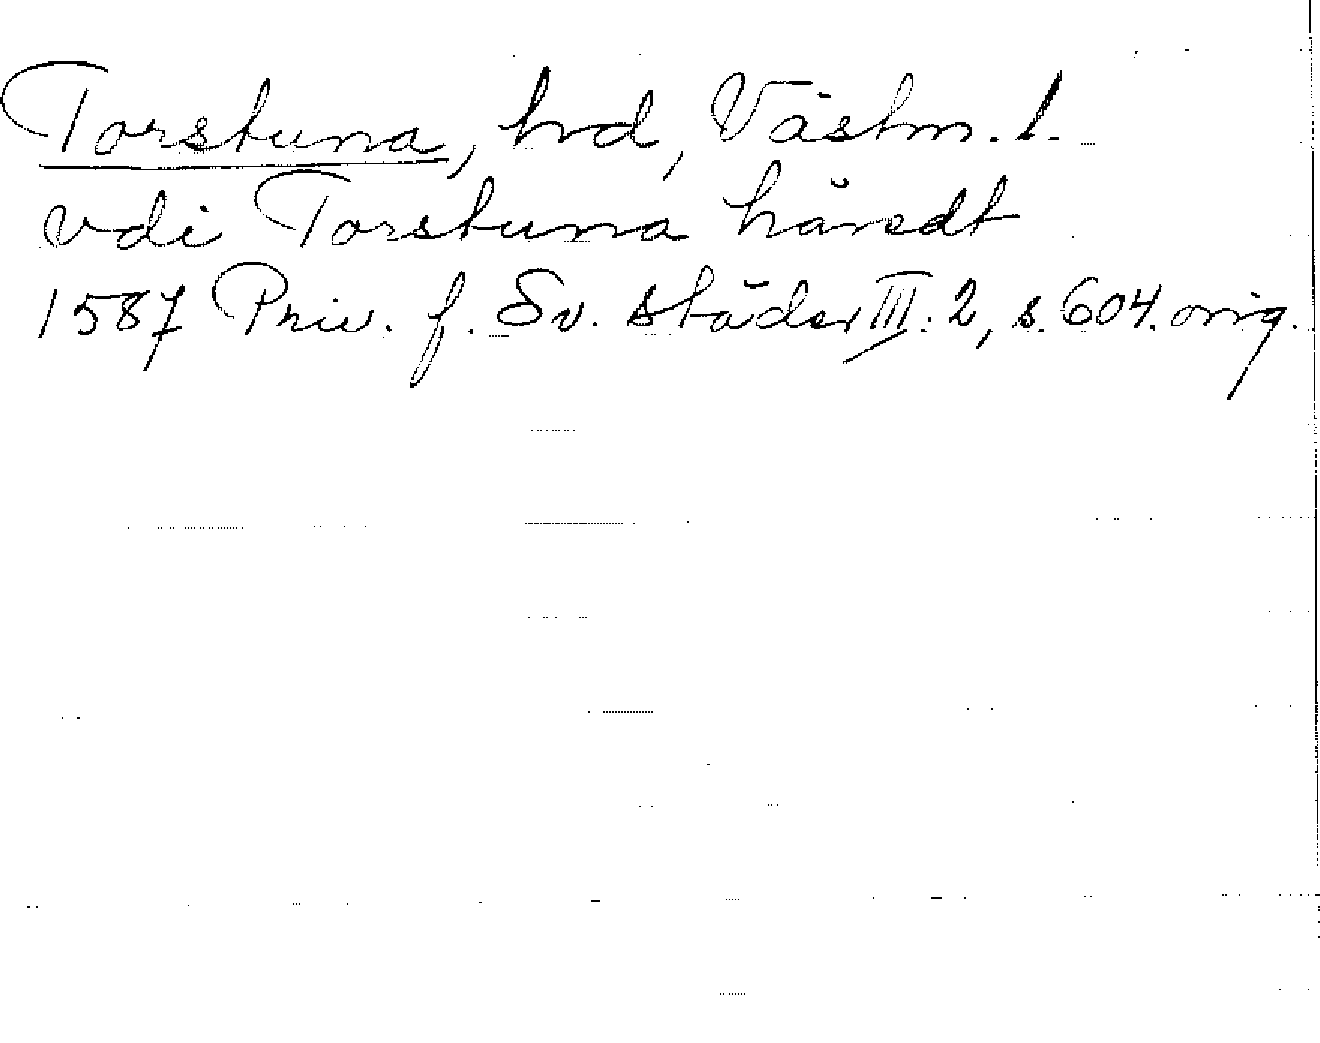 Torstuna, hrd, Västm. l.
vdi Torstuna häredt
1587 Priv. f. Sv. städer III:2, s. 604. orig.